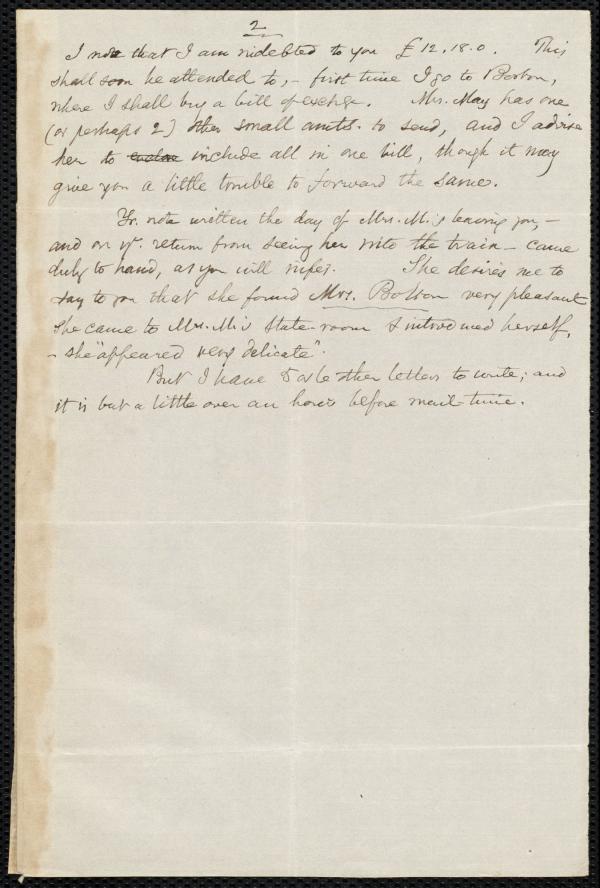 2
I note that I am indebted to you £12.18.0. This
shall soon be attended to, - first time I go to Boston,
where I shall buy a bill of exchge. Mrs. May has one
(or perhaps 2) other small amts. to send, and I advise
her to include all in one bill, though it may
give you a little trouble to forward the same.
Yr. note written the day of Mrs. M.'s leaving you, -
and on yr. return from seeing her into the train - came
duly to hand, as you will infer. She desires me to
say to you that she found Mrs. Bolton very pleasant
She came to Mrs. M.'s State-room & introduced herself,
- she "appeared very delicate".
But I have 5 or 6 other letters to write; and
it is but a little over an hour before mail-time.